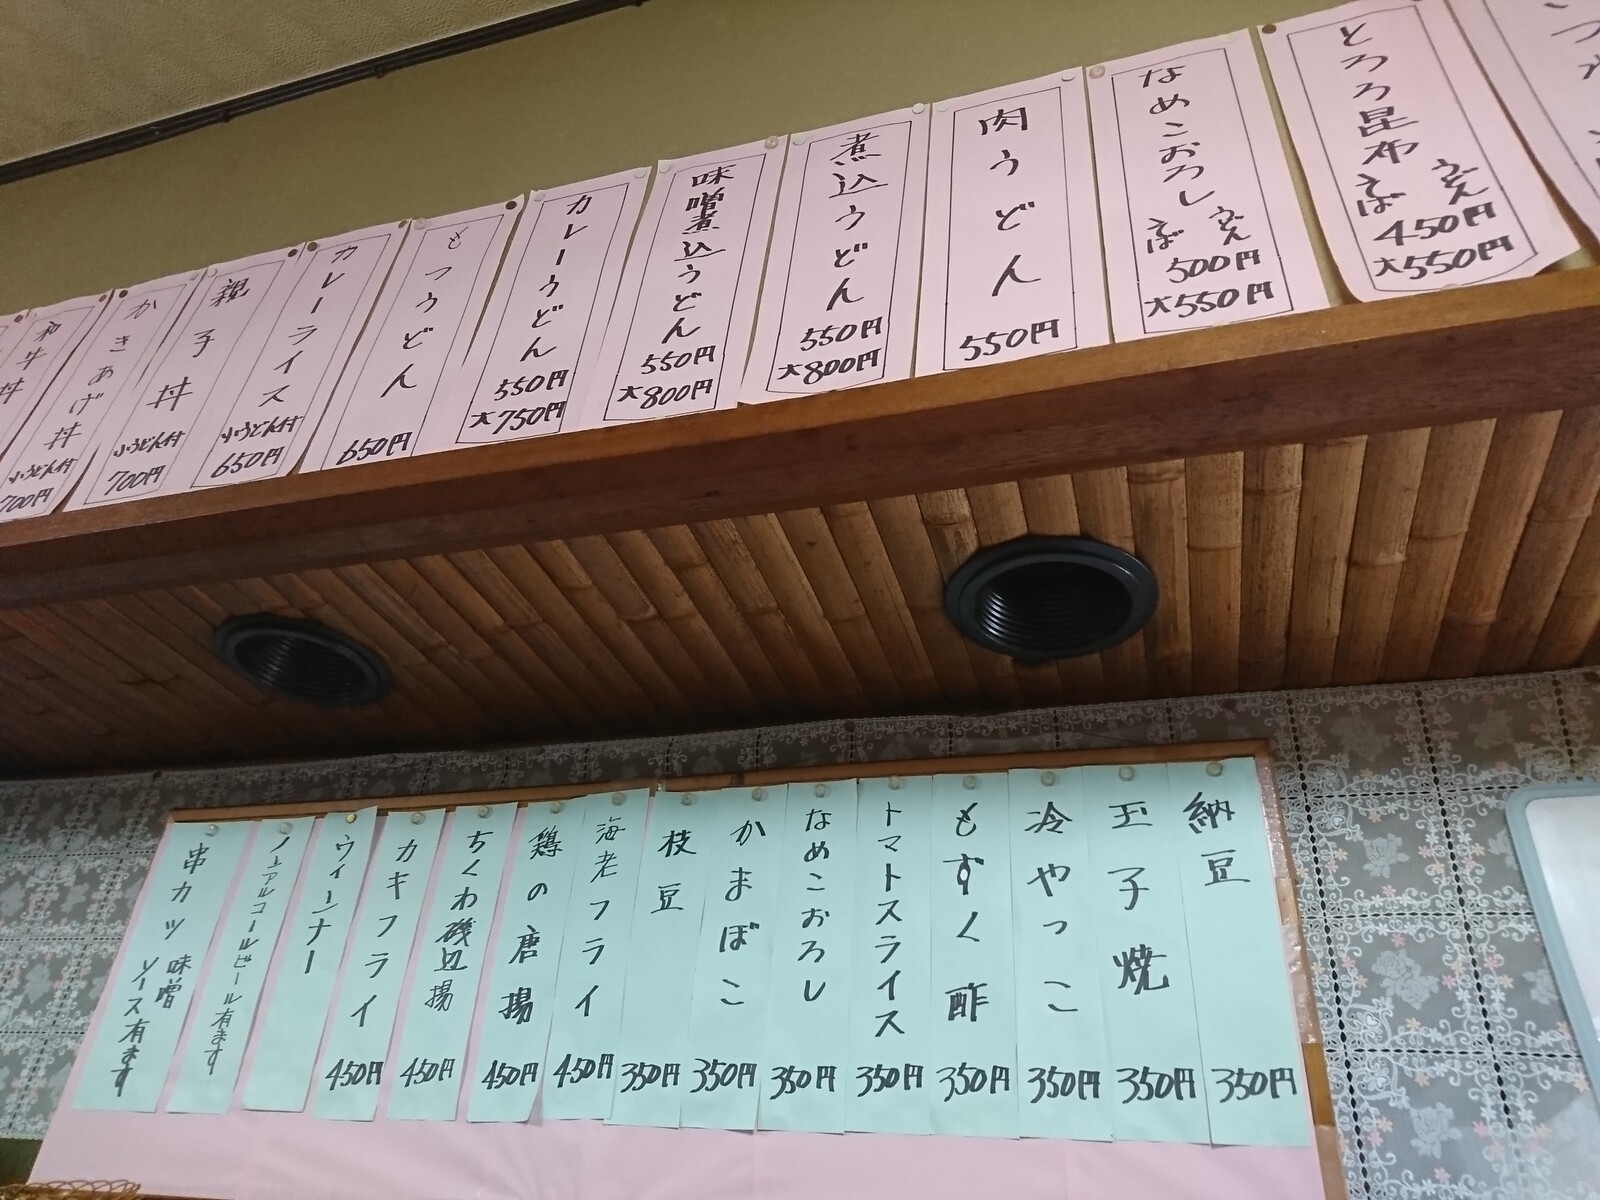 とろろ昆布
うどん
そば
450円
大550円
なめこおろし
うどん
そば
500円
大550円
肉うどん
550円
煮込うどん
550円
大800円
味噌煮込うどん
550円
大800円
カレーうどん
550円
大750円
もつうどん
650円
カレーライス
小うどん付
650円
親子丼
小うどん付
700円
かきあげ丼
小うどん付
700円
和牛丼
納豆
350円
玉子焼
350円
冷やっこ
350円
もずく酢
350円
トマトスライス
350円
なめこおろし
350円
かまぼこ
350円
枝豆
350円
海老フライ
450円
鶏の唐揚
450円
ちくわ磯辺揚
450円
カキフライ
450円
ウィンナー
ノンアルコールビール有ます
串カツ
味噌
ソース有ます